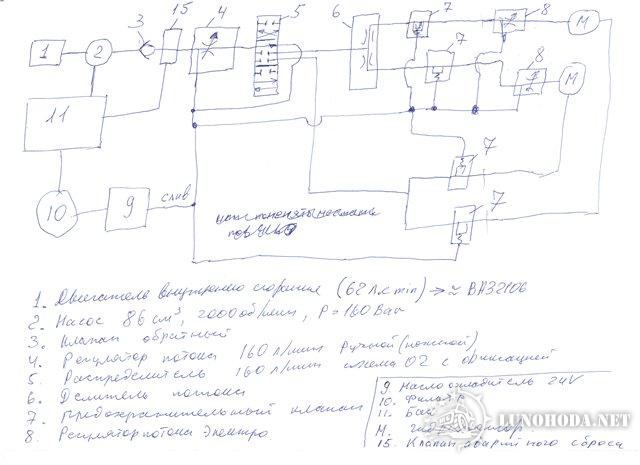 15 4 5 6 7 8
3 M
1 2 7 8
M
11
7
10 9 слив
7
1. Двигатель внутреннего сгорания (62 л.с min) → ≈ ВАЗ2106
2. Насос 86 см³, 2000 об/мин, P = 160 Bar
3. Клапан обратный
4. Регулятор потока 160 л/мин ручной (ножной)
5. Распределитель 160 л/мин схема 02 с фиксацией
6. Делитель потока
7. Предохранительный клапан
8. Регулятор потока Электро
9 Маслоохладитель 24V
10. Фильтр
11. Бак
M.
15. Клапан аварийного сброса
LUNOHODA.NET